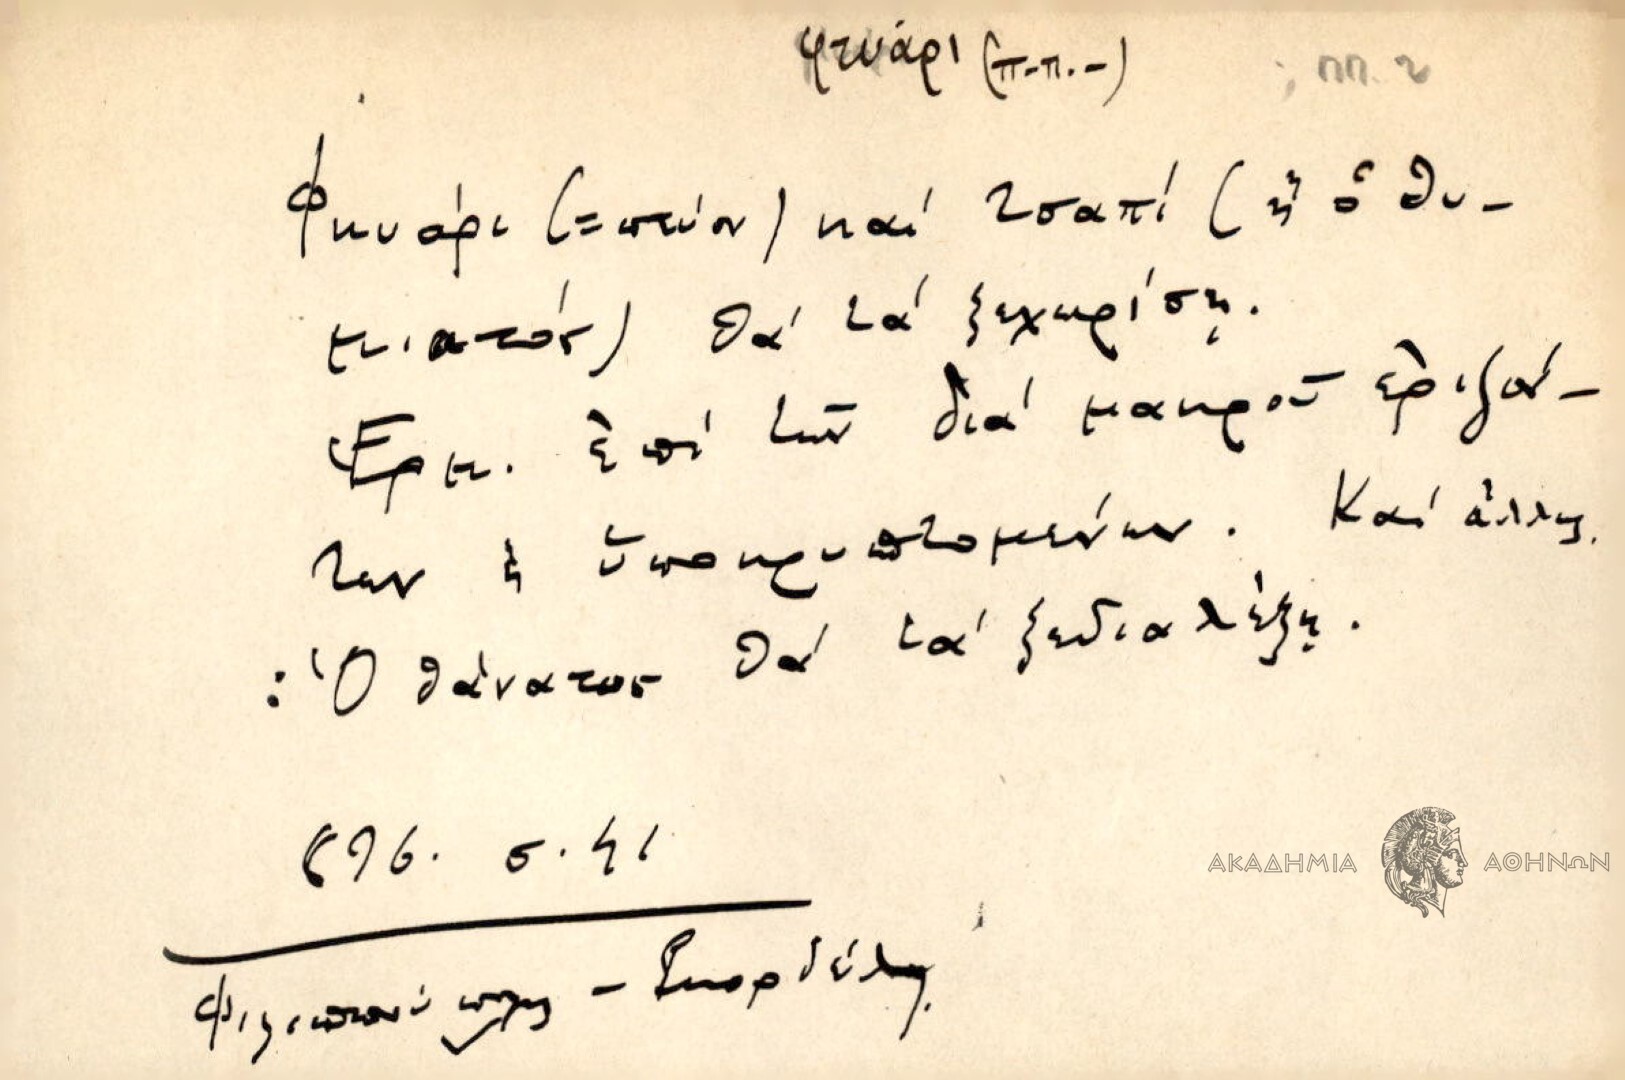 φτυάρι (π.π.-)
ππ. 2
Φκυάρι (=πτύον) καί τσαπί (ἤ ὁ θυ-
μιατός) θά τά ξεχωρίσῃ.
Ἑρμ. ἐπί τῶν διά μακροῦ ἐριζόν-
των ἤ ὑποκρυπτομένων. Καί ἄλλως
: Ὁ θάνατος θά τά ξεδιαλέξῃ.
696. σ. 41
Φιλιππούπολις - Σκορδέλης
ΑΚΑΔΗΜΙΑ ΑΘΗΝΩΝ